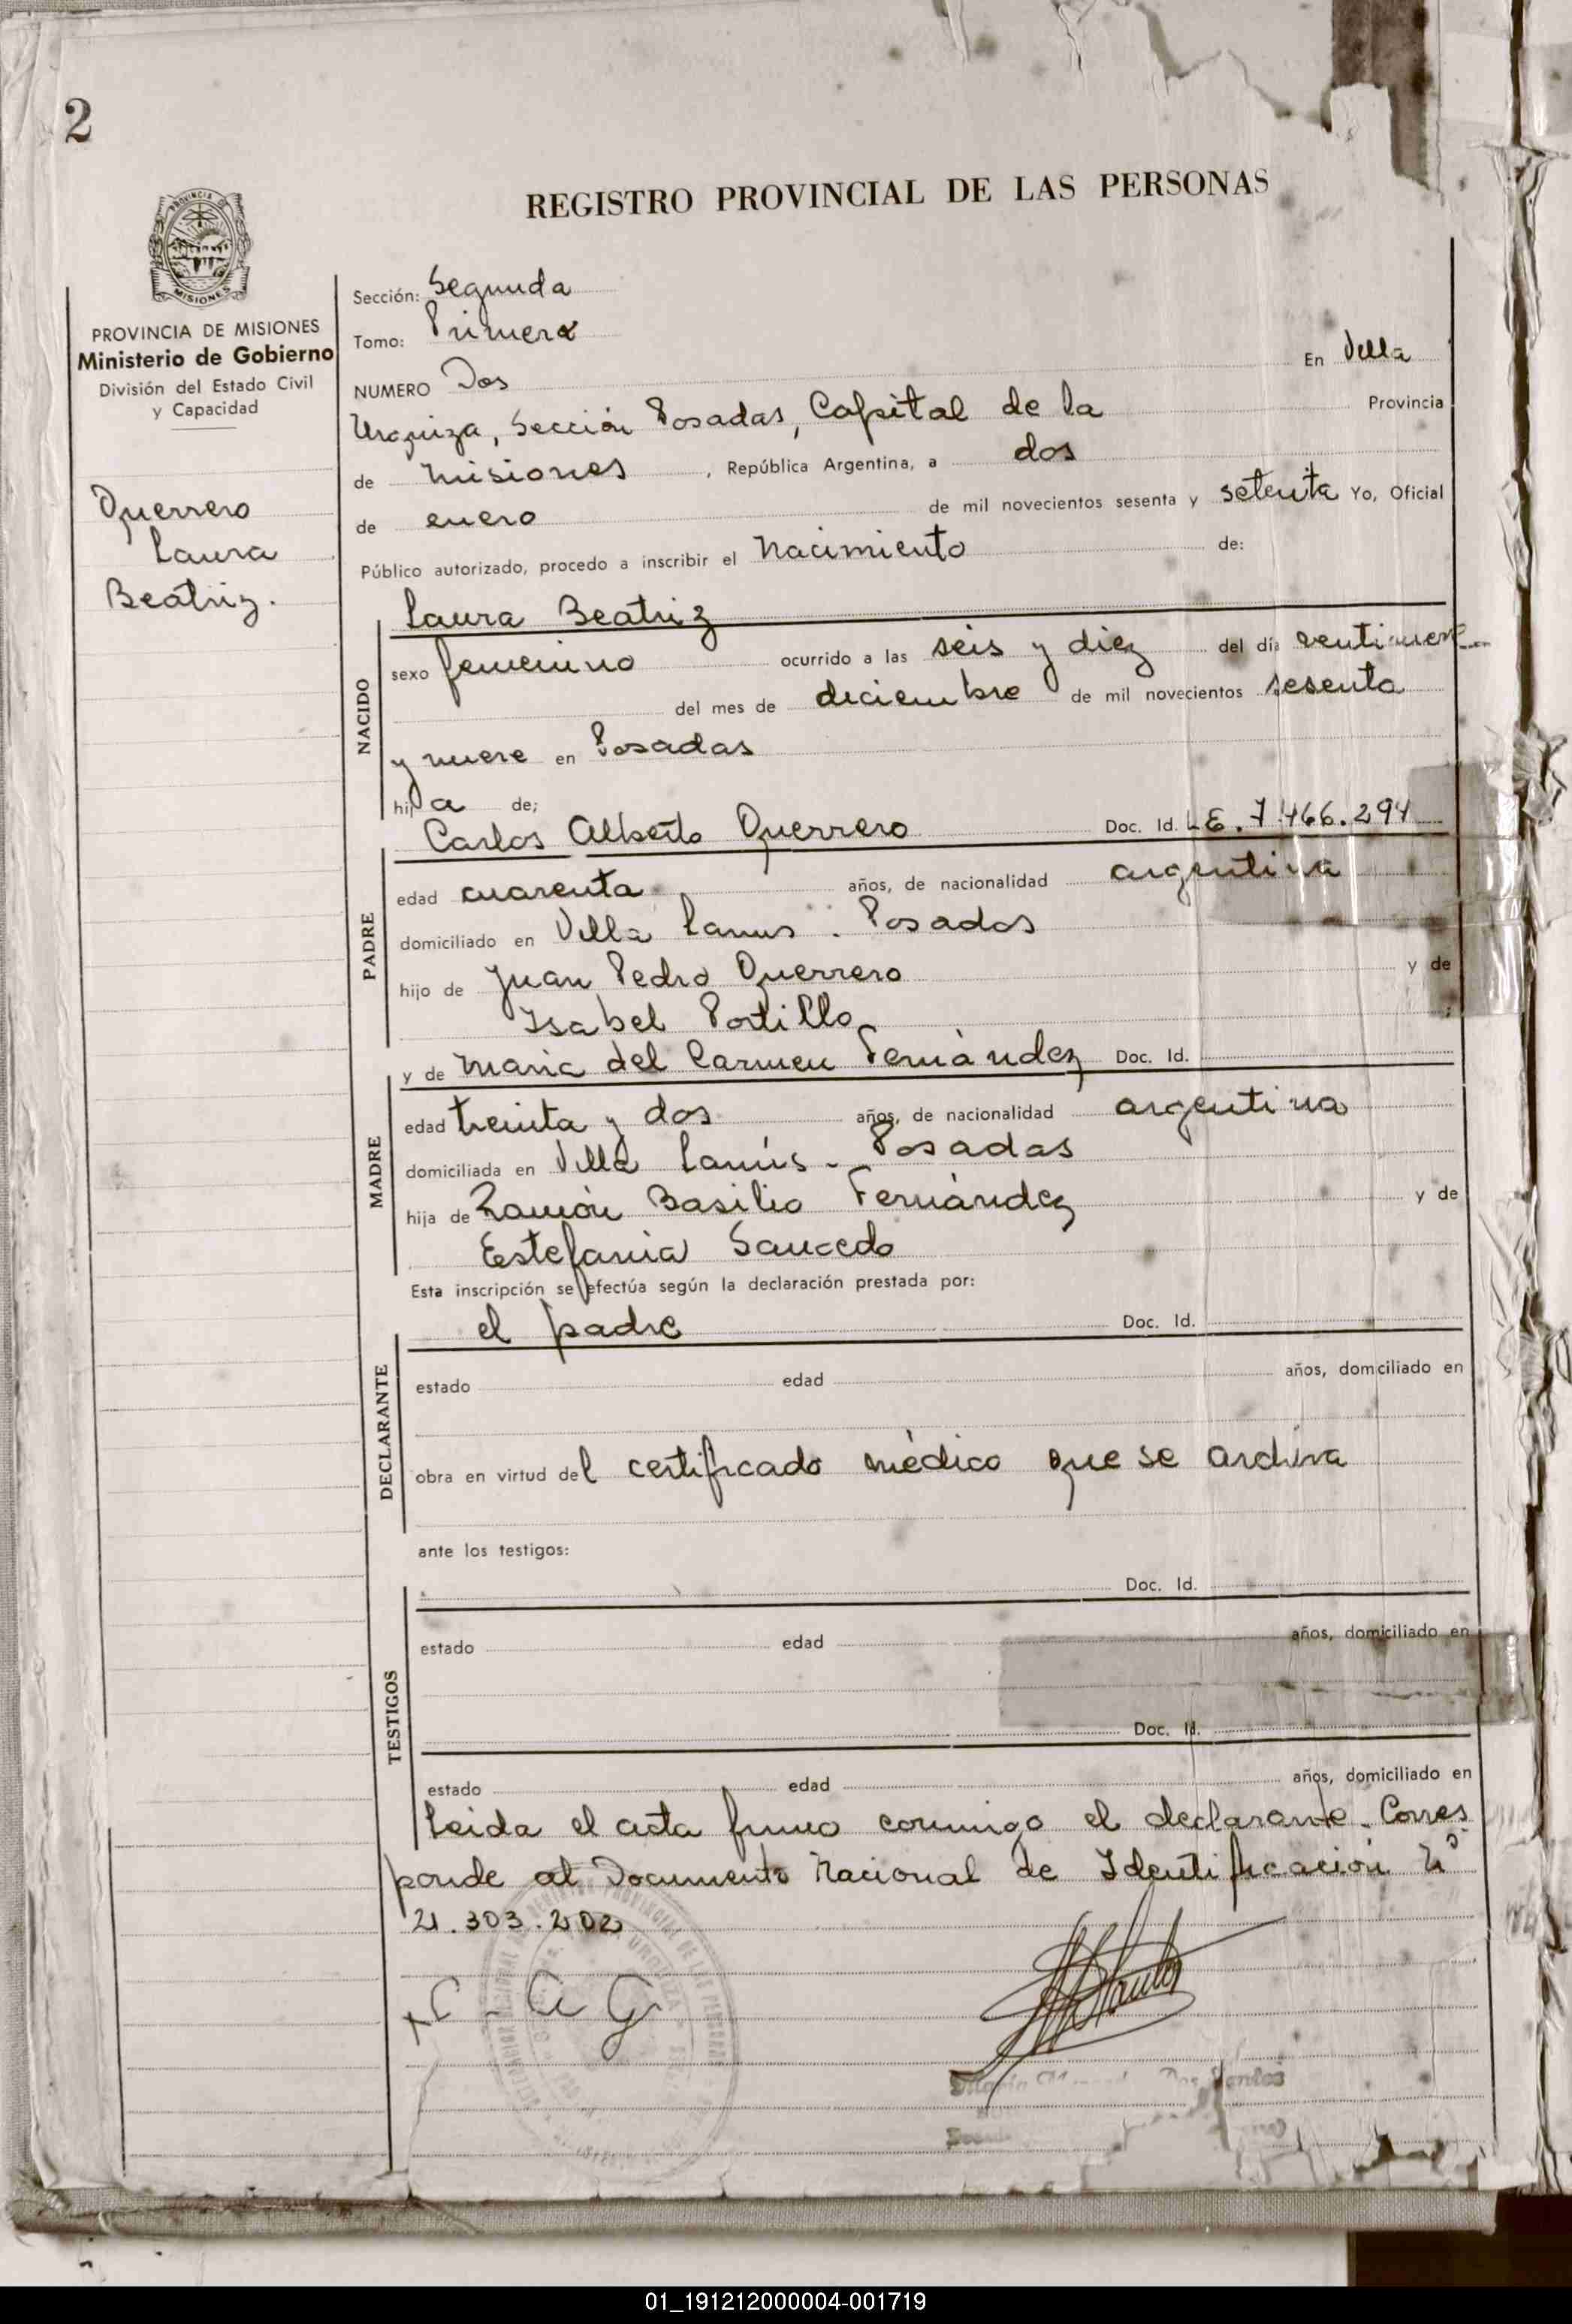 2
REGISTRO PROVINCIAL DE LAS PERSONAS
PROVINCIA DE MISIONES
Ministerio de Gobierno
División del Estado Civil
y Capacidad
Guerrero
Laura
Beatriz.
Sección: Segunda
Tomo: Primera
NUMERO Dos En Villa
Urquiza, Sección Posadas, Capital de la Provincia
de Misiones, República Argentina, a dos
de enero de mil novecientos sesenta y setenta Yo, Oficial
Público autorizado, procedo a inscribir el Nacimiento de:
Laura Beatriz
NACIDO
sexo femenino ocurrido a las seis y diez del día ventinueve
del mes de diciembre de mil novecientos sesenta
y nueve en Posadas
hija de;
Carlos Alberto Guerrero Doc. Id. L.E. 7.466.294
PADRE
edad cuarenta años, de nacionalidad argentina
domiciliado en Villa Lanus. Posadas
hijo de Juan Pedro Guerrero y de
Isabel Portillo
y de Maria del Carmen Fernández Doc. Id.
MADRE
edad treinta y dos años, de nacionalidad argentina
domiciliada en Villa Lanús - Posadas
hija de Ramón Basilio Fernández y de
Estefania Saucedo
Esta inscripción se efectúa según la declaración prestada por:
el padre Doc. Id.
DECLARANTE
estado edad años, domciliado en
obra en virtud del certificado médico que se archiva
ante los testigos:
Doc. Id.
TESTIGOS
estado edad años, domiciliado en
Doc. Id.
estado edad años, domiciliado en
Leida el acta firma conmigo el declarante. Corres
ponde al Documento Nacional de Identificación Nº
21.303.202
C - A G
01_191212000004-001719